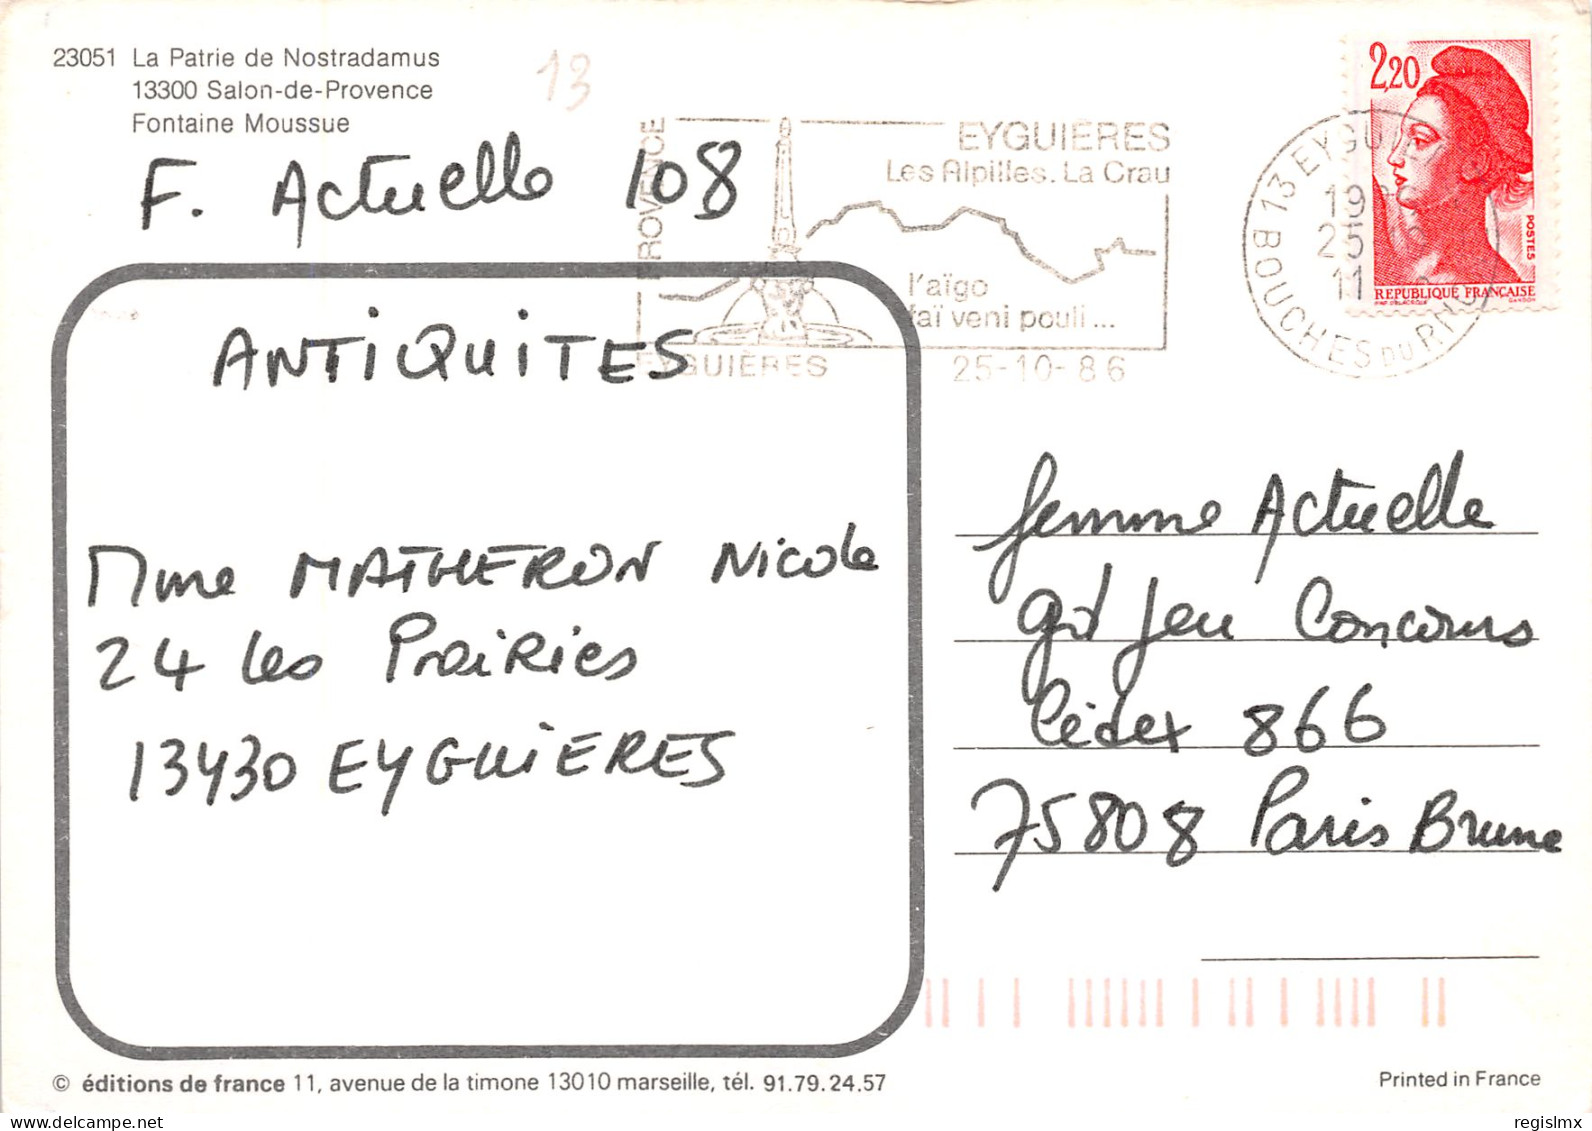 23051 La Patrie de Nostradamus
13300 Salon-de-Provence
Fontaine Moussue
13
F. Actuelle 108
PROVENCE
EYGUIÈRES
Les Alpilles. La Crau
l'aïgo
faï veni pouli...
EYGUIÈRES
25-10-86
2,20
POSTES
REPUBLIQUE FRANÇAISE
13 EYGUI
19
25
11
BOUCHES DU RH
ANTIQUITES
Mme MATHERON Nicole
24 les Prairies
13430 EYGUIERES
femme Actuelle
gd Jeu Concours
Cédex 866
75808 Paris Brune
© éditions de france 11, avenue de la timone 13010 marseille, tél. 91.79.24.57
Printed in France
regislmx